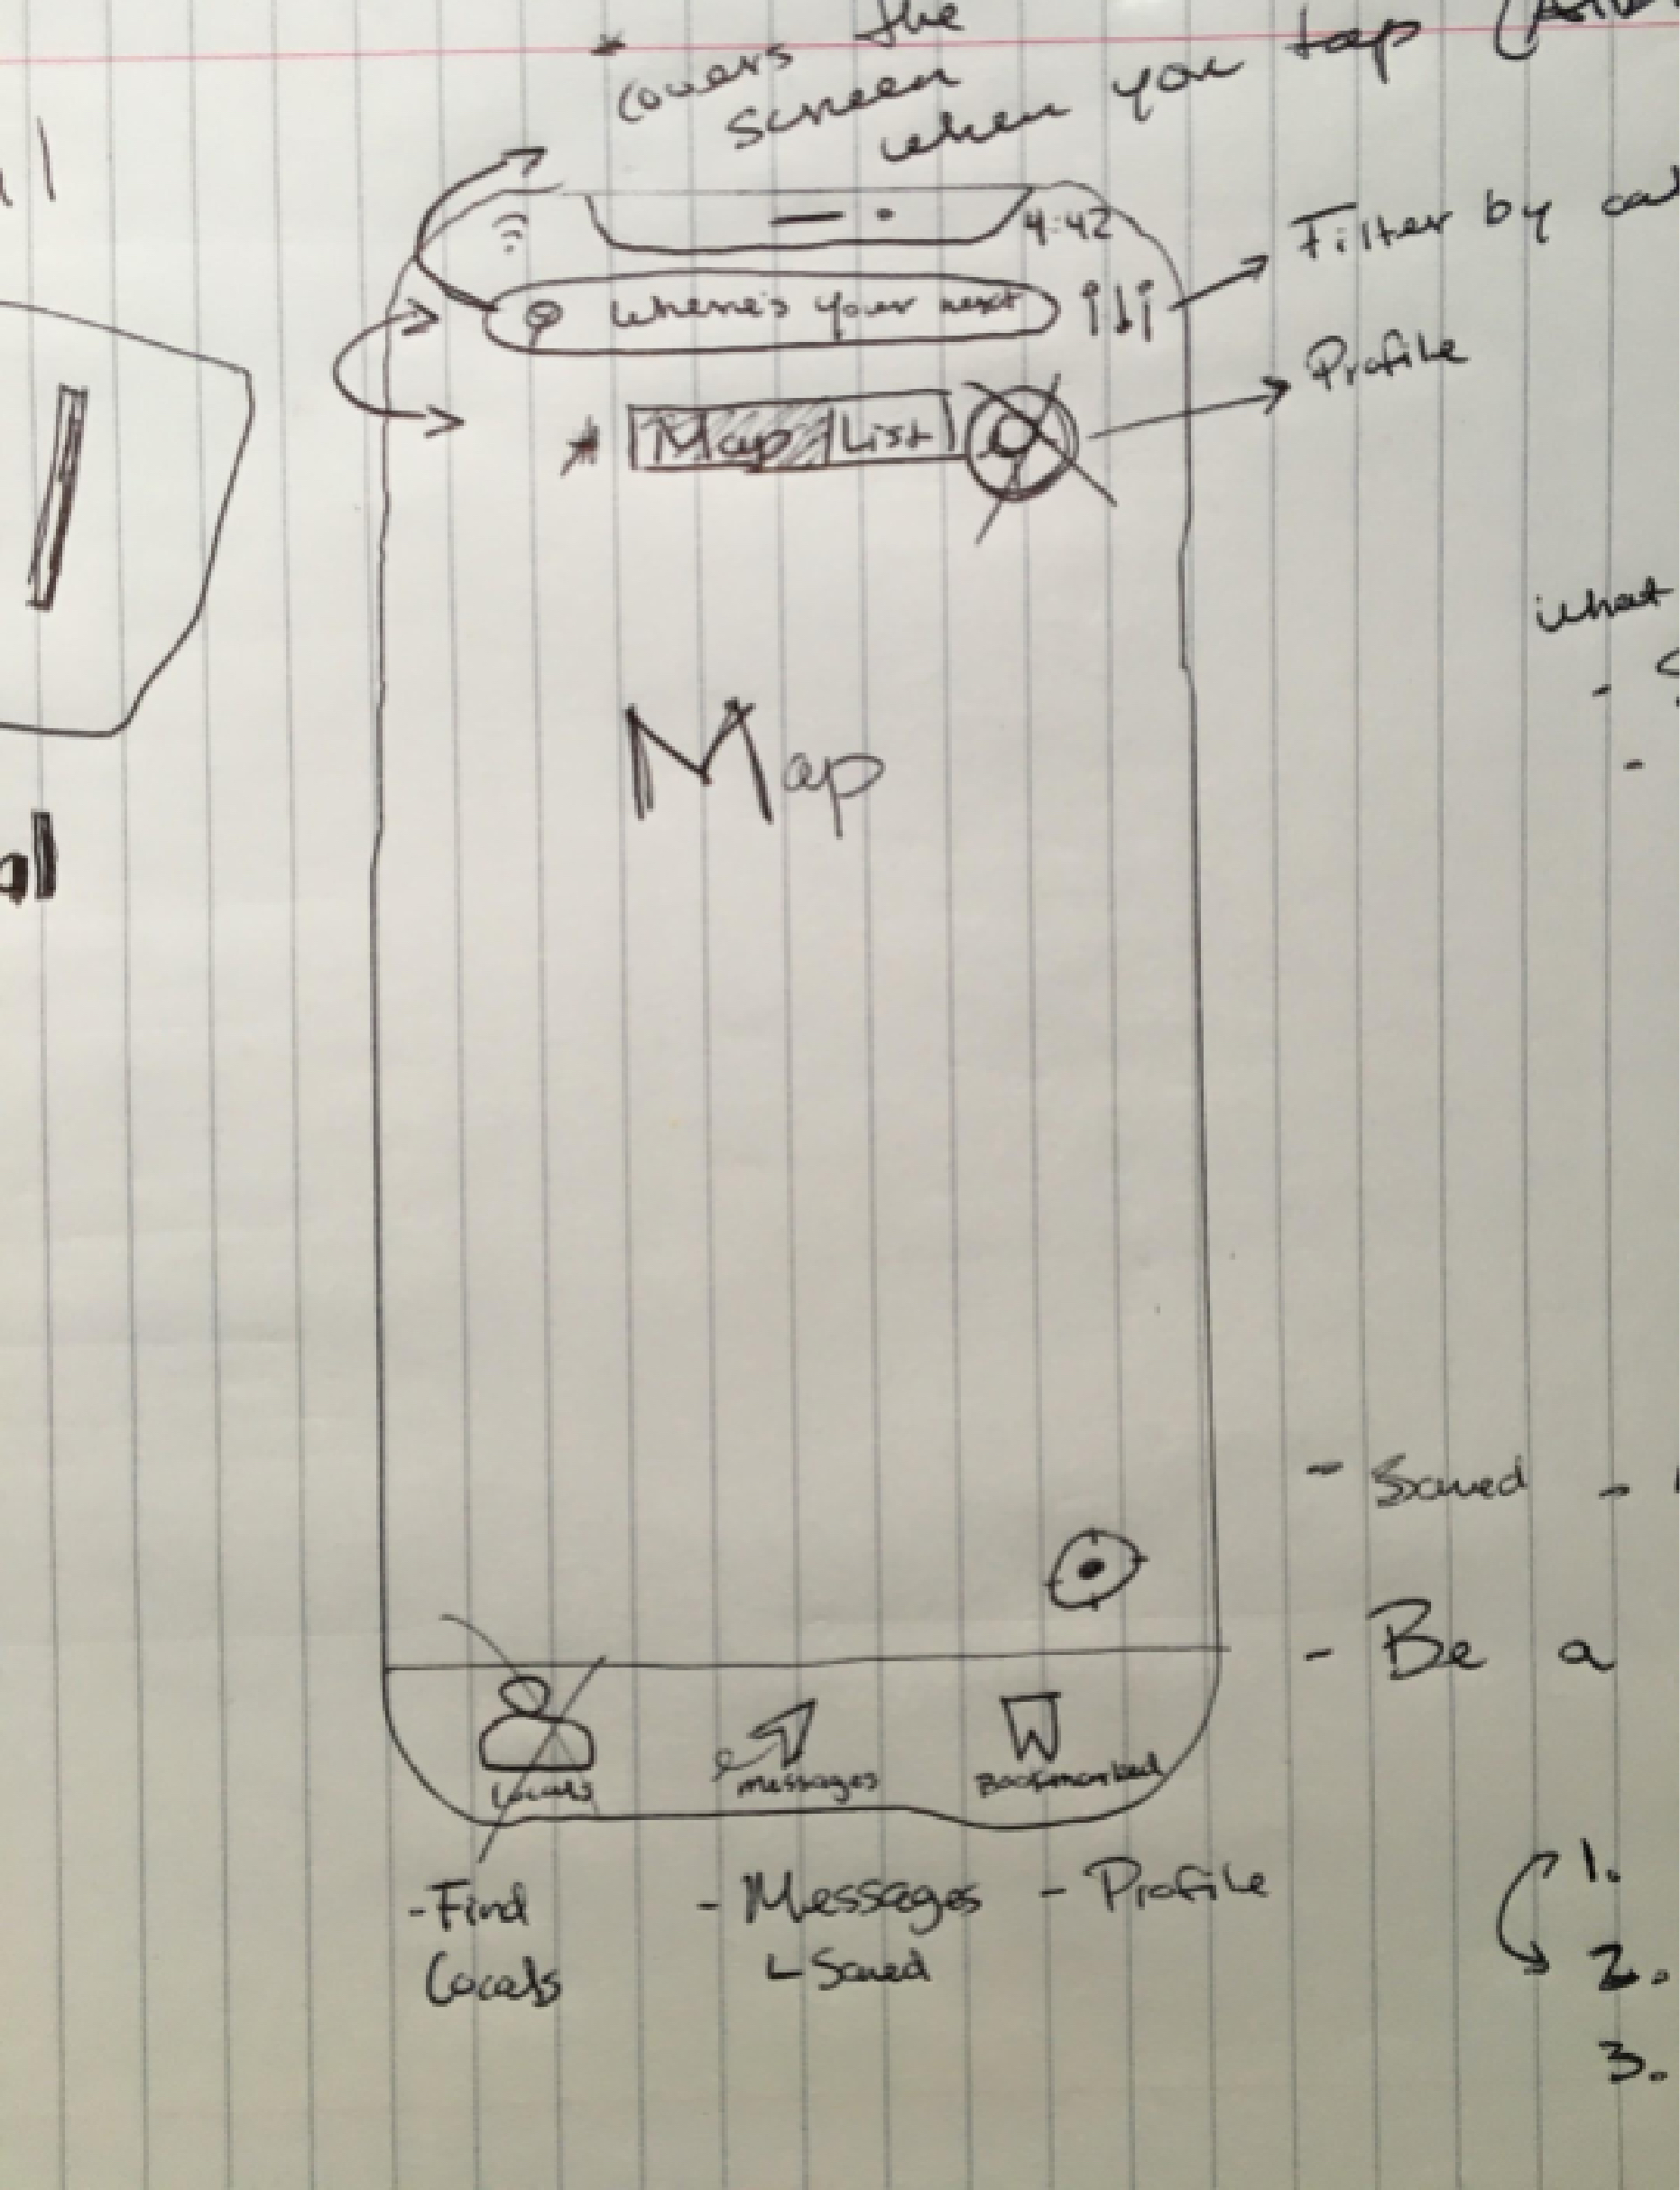 * covers the
screen
when you tap
4:42
Where's your next
Filter by
Map List
Profile
Map
what
- Saved -
- Be a
Locals
messages
Bookmarked
- Find
Locals
- Messages
Saved
- Profile
1.
2.
3.